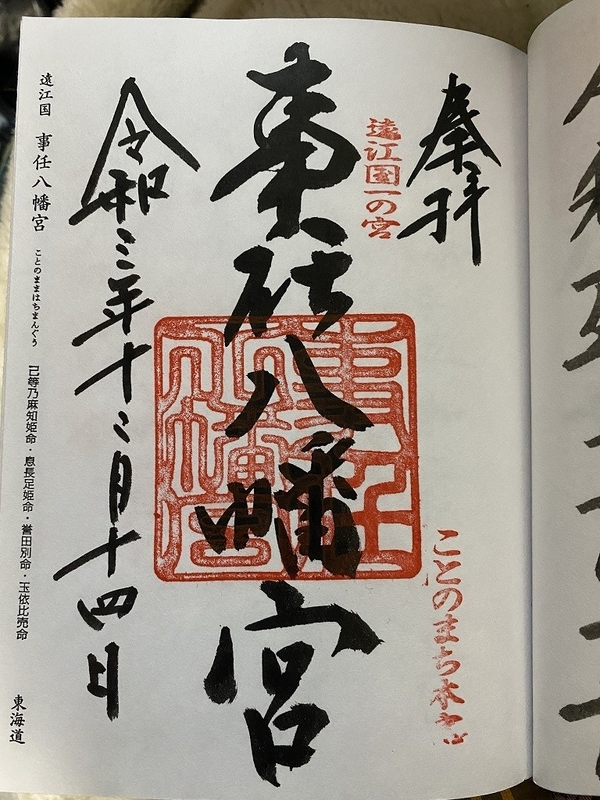 奉拝
遠江国一の宮
ことのまち
事任八幡宮
事任八幡宮
令和三年十二月十四日
遠江国 事任八幡宮 ことのままはちまんぐう 己等乃麻知姫命・息長足姫命・誉田別命・玉依比売命 東海道